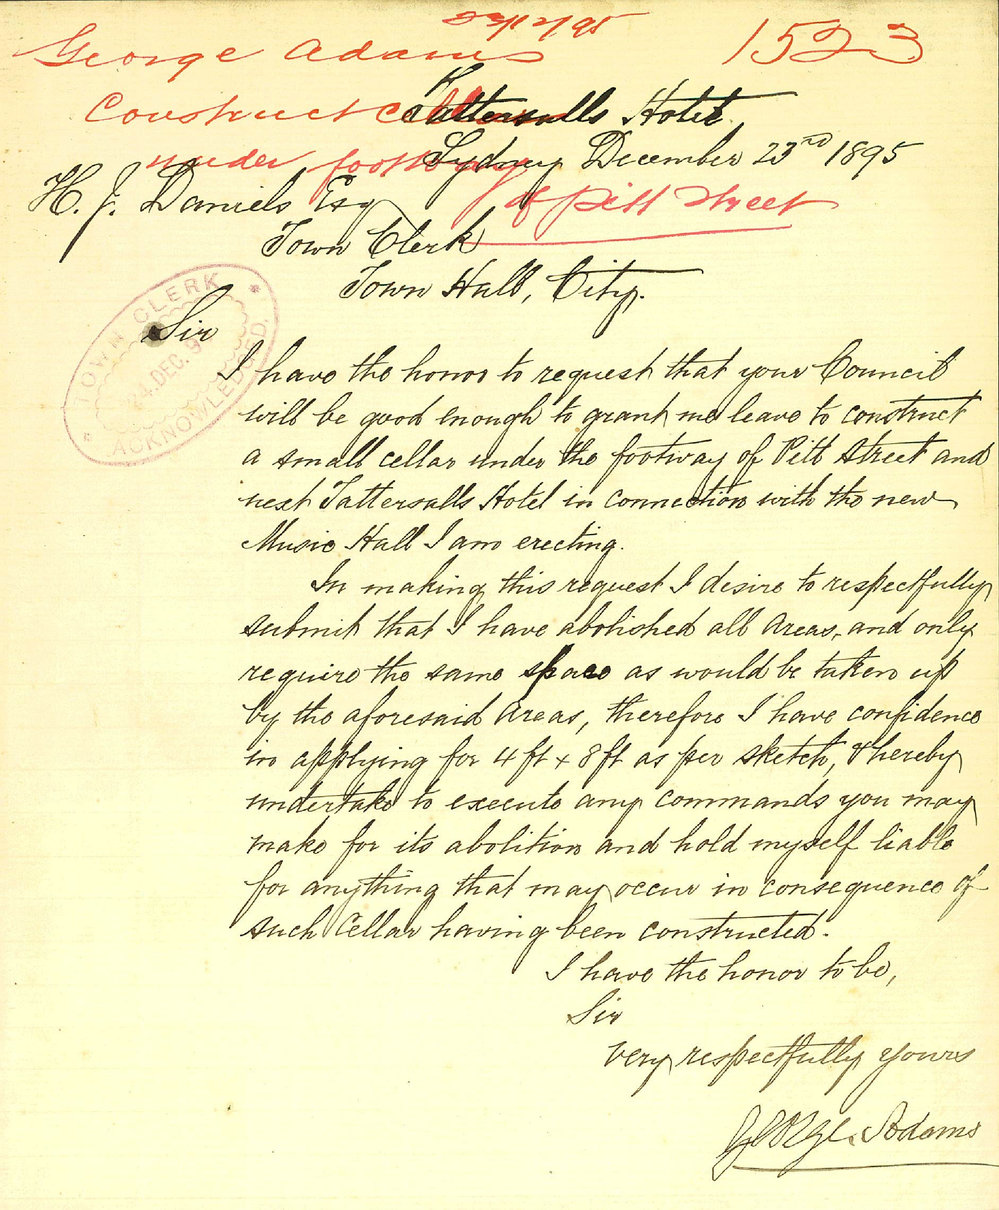 23/12/95
George Adams 1523
Construct cellar
under footway
of Pitt Street
Tattersalls Hotel
Sydney December 23rd 1895
H. J. Daniels Esq
Town Clerk
Town Hall, City.
TOWN CLERK
24. DEC. 95
ACKNOWLEDGED.
Sir
I have the honor to request that your Council
will be good enough to grant me leave to construct
a small cellar under the footway of Pitt Street and
next Tattersalls Hotel in connection with the new
Music Hall I am erecting.
In making this request I desire to respectfully
submit that I have abolished all areas, and only
require the same space as would be taken up
by the aforesaid areas, therefore I have confidence
in applying for 4 ft x 8 ft as per sketch, & hereby
undertake to execute any commands you may
make for its abolition and hold myself liable
for anything that may occur in consequence of
such Cellar having been constructed.
I have the honor to be,
Sir
Very respectfully yours
George Adams